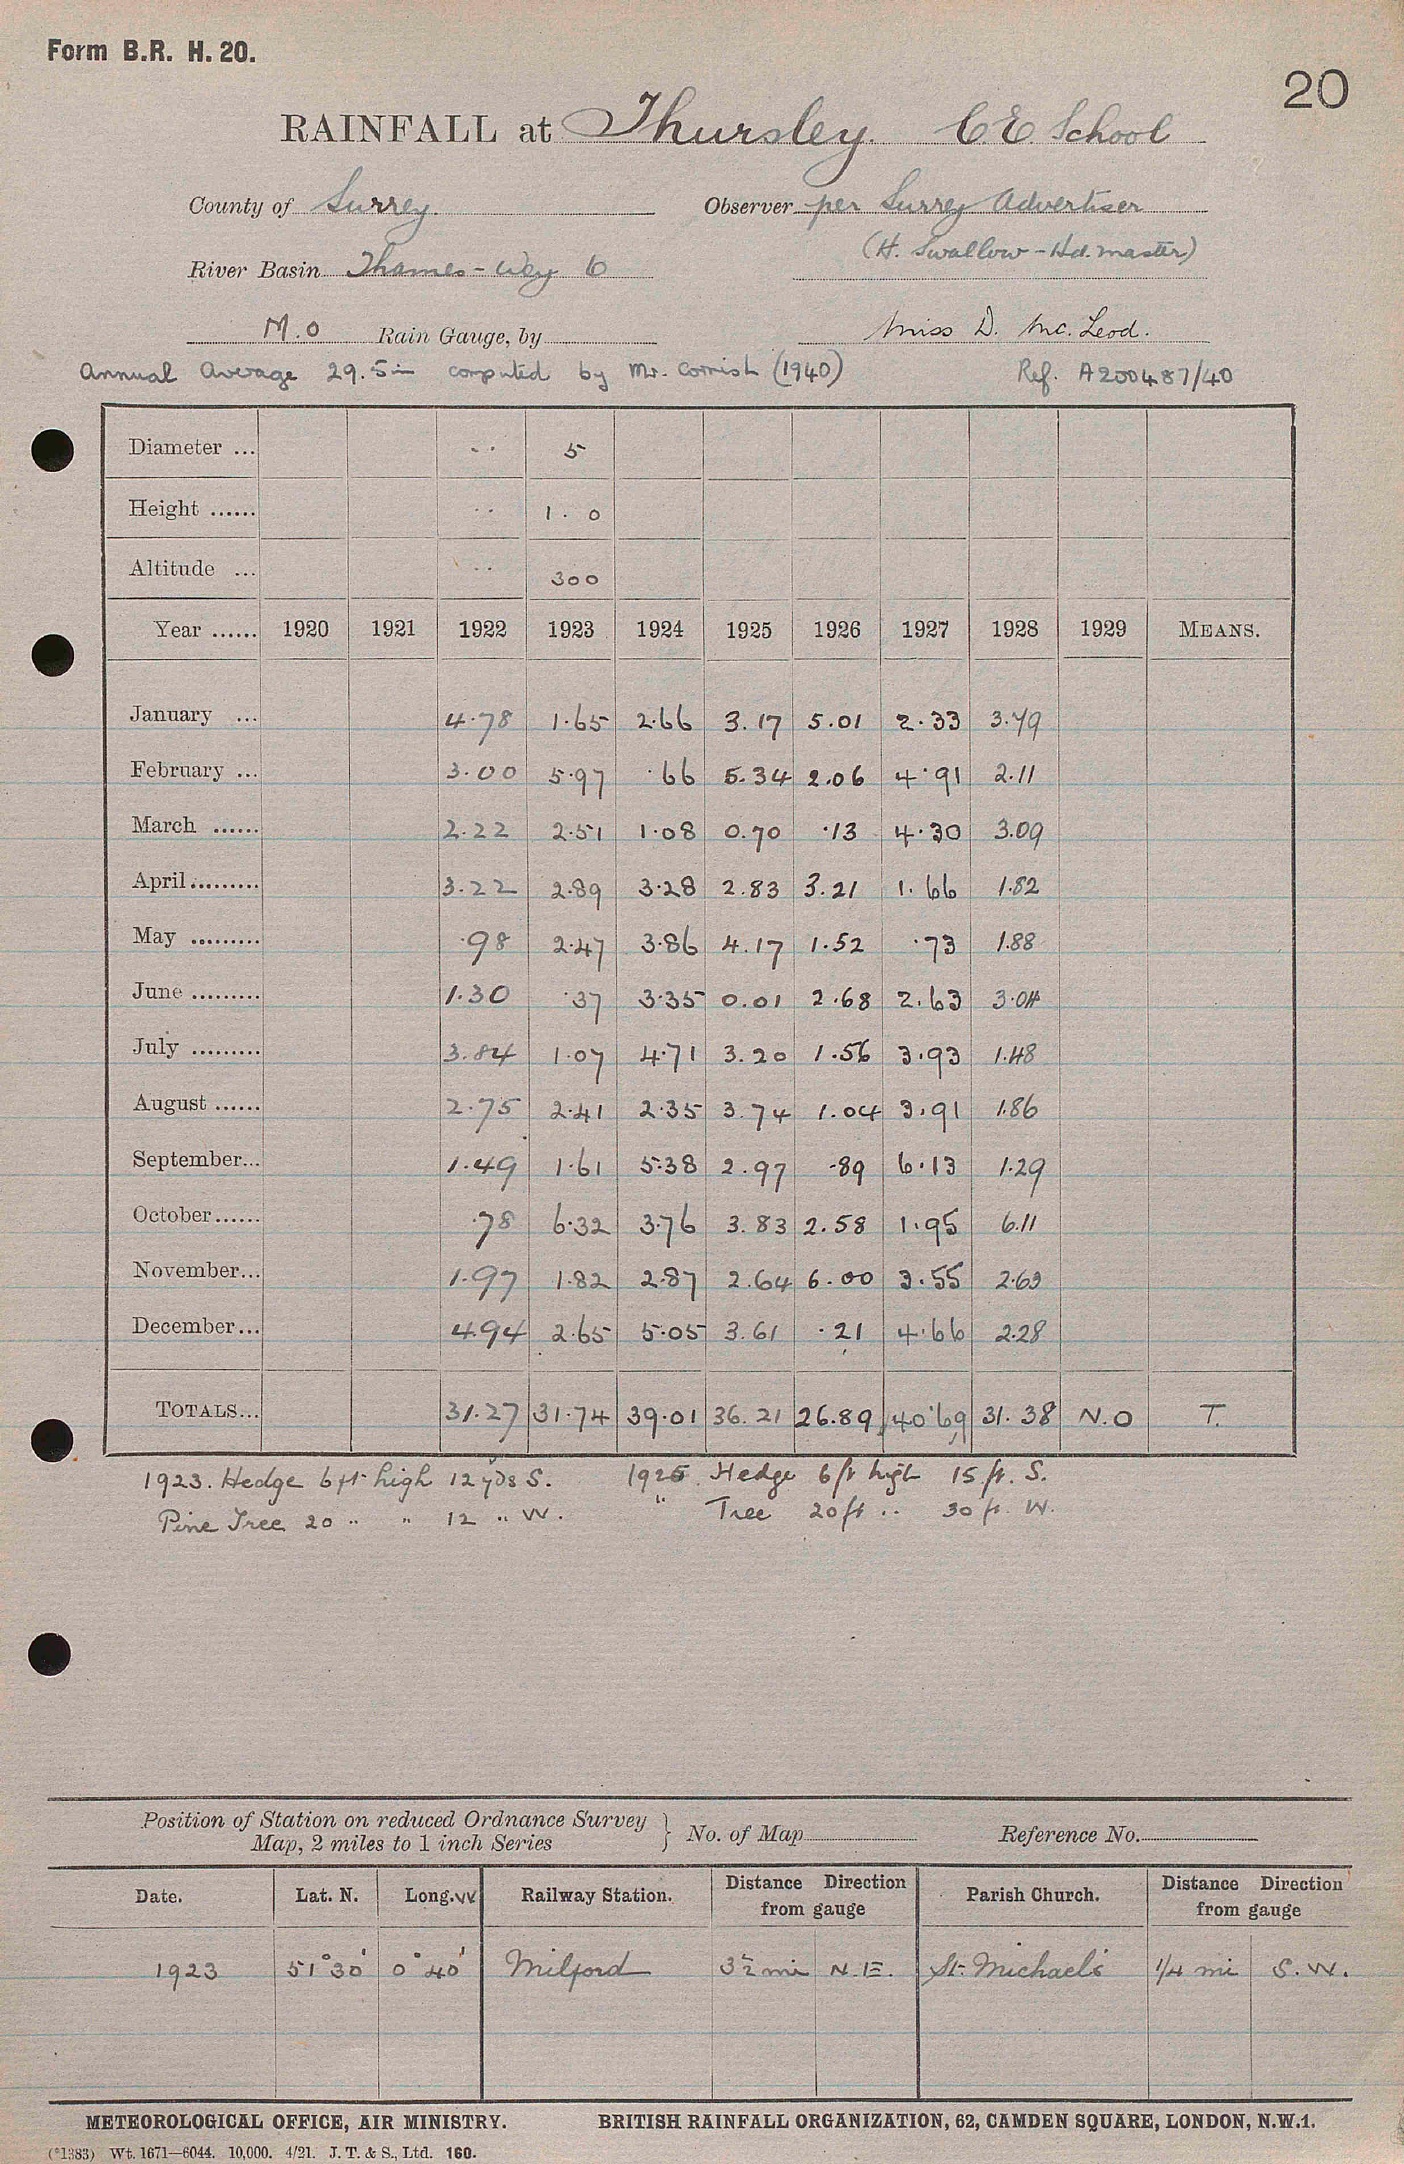 Form B.R. H. 20.
20
RAINFALL at Thursley. C.E. School
County of Surrey. Observer per Surrey Advertiser
(H. Swallow - Hd. master)
River Basin Thames - Wey 6
M.O Rain Gauge, by Miss D. Mc. Leod.
Annual Average 29.5 in computed by Mr. Cornish (1940) Ref. A200487/40
Diameter ... .. 5
Height ...... .. 1. 0
Altitude ... .. 300
Year ...... 1920 1921 1922 1923 1924 1925 1926 1927 1928 1929 MEANS.
January ... 4.78 1.65 2.66 3.17 5.01 2.33 3.79
February ... 3.00 5.97 .66 5.34 2.06 4.91 2.11
March ...... 2.22 2.51 1.08 0.70 .13 4.30 3.09
April......... 3.22 2.89 3.28 2.83 3.21 1.66 1.82
May ......... .98 2.47 3.86 4.17 1.52 .73 1.88
June ......... 1.30 .37 3.35 0.01 2.68 2.63 3.04
July ......... 3.84 1.07 4.71 3.20 1.56 3.93 1.48
August ...... 2.75 2.41 2.35 3.74 1.04 3.91 1.86
September... 1.49 1.61 5.38 2.97 .89 6.13 1.29
October...... .78 6.32 3.76 3.83 2.58 1.95 6.11
November... 1.97 1.82 2.87 2.64 6.00 3.55 2.63
December... 4.94 2.65 5.05 3.61 .21 4.66 2.28
TOTALS... 31.27 31.74 39.01 36.21 26.89 40.69 31.38 N.O T.
1923. Hedge 6 ft high 12 yds S. 1925. Hedge 6 ft high 15 ft. S.
Pine Tree 20 " " 12 " W. " Tree 20 ft .. 30 ft W.
Position of Station on reduced Ordnance Survey
Map, 2 miles to 1 inch Series } No. of Map Reference No.
Date. Lat. N. Long. W. Railway Station. Distance Direction from gauge Parish Church. Distance Direction from gauge
1923 51° 30' 0° 40' Milford 3½ mi N.E. St. Michael's 1/4 mi S.W.
METEOROLOGICAL OFFICE, AIR MINISTRY. BRITISH RAINFALL ORGANIZATION, 62, CAMDEN SQUARE, LONDON, N.W.1.
(*1383) Wt. 1671—6044. 10,000. 4/21. J. T. & S., Ltd. 160.